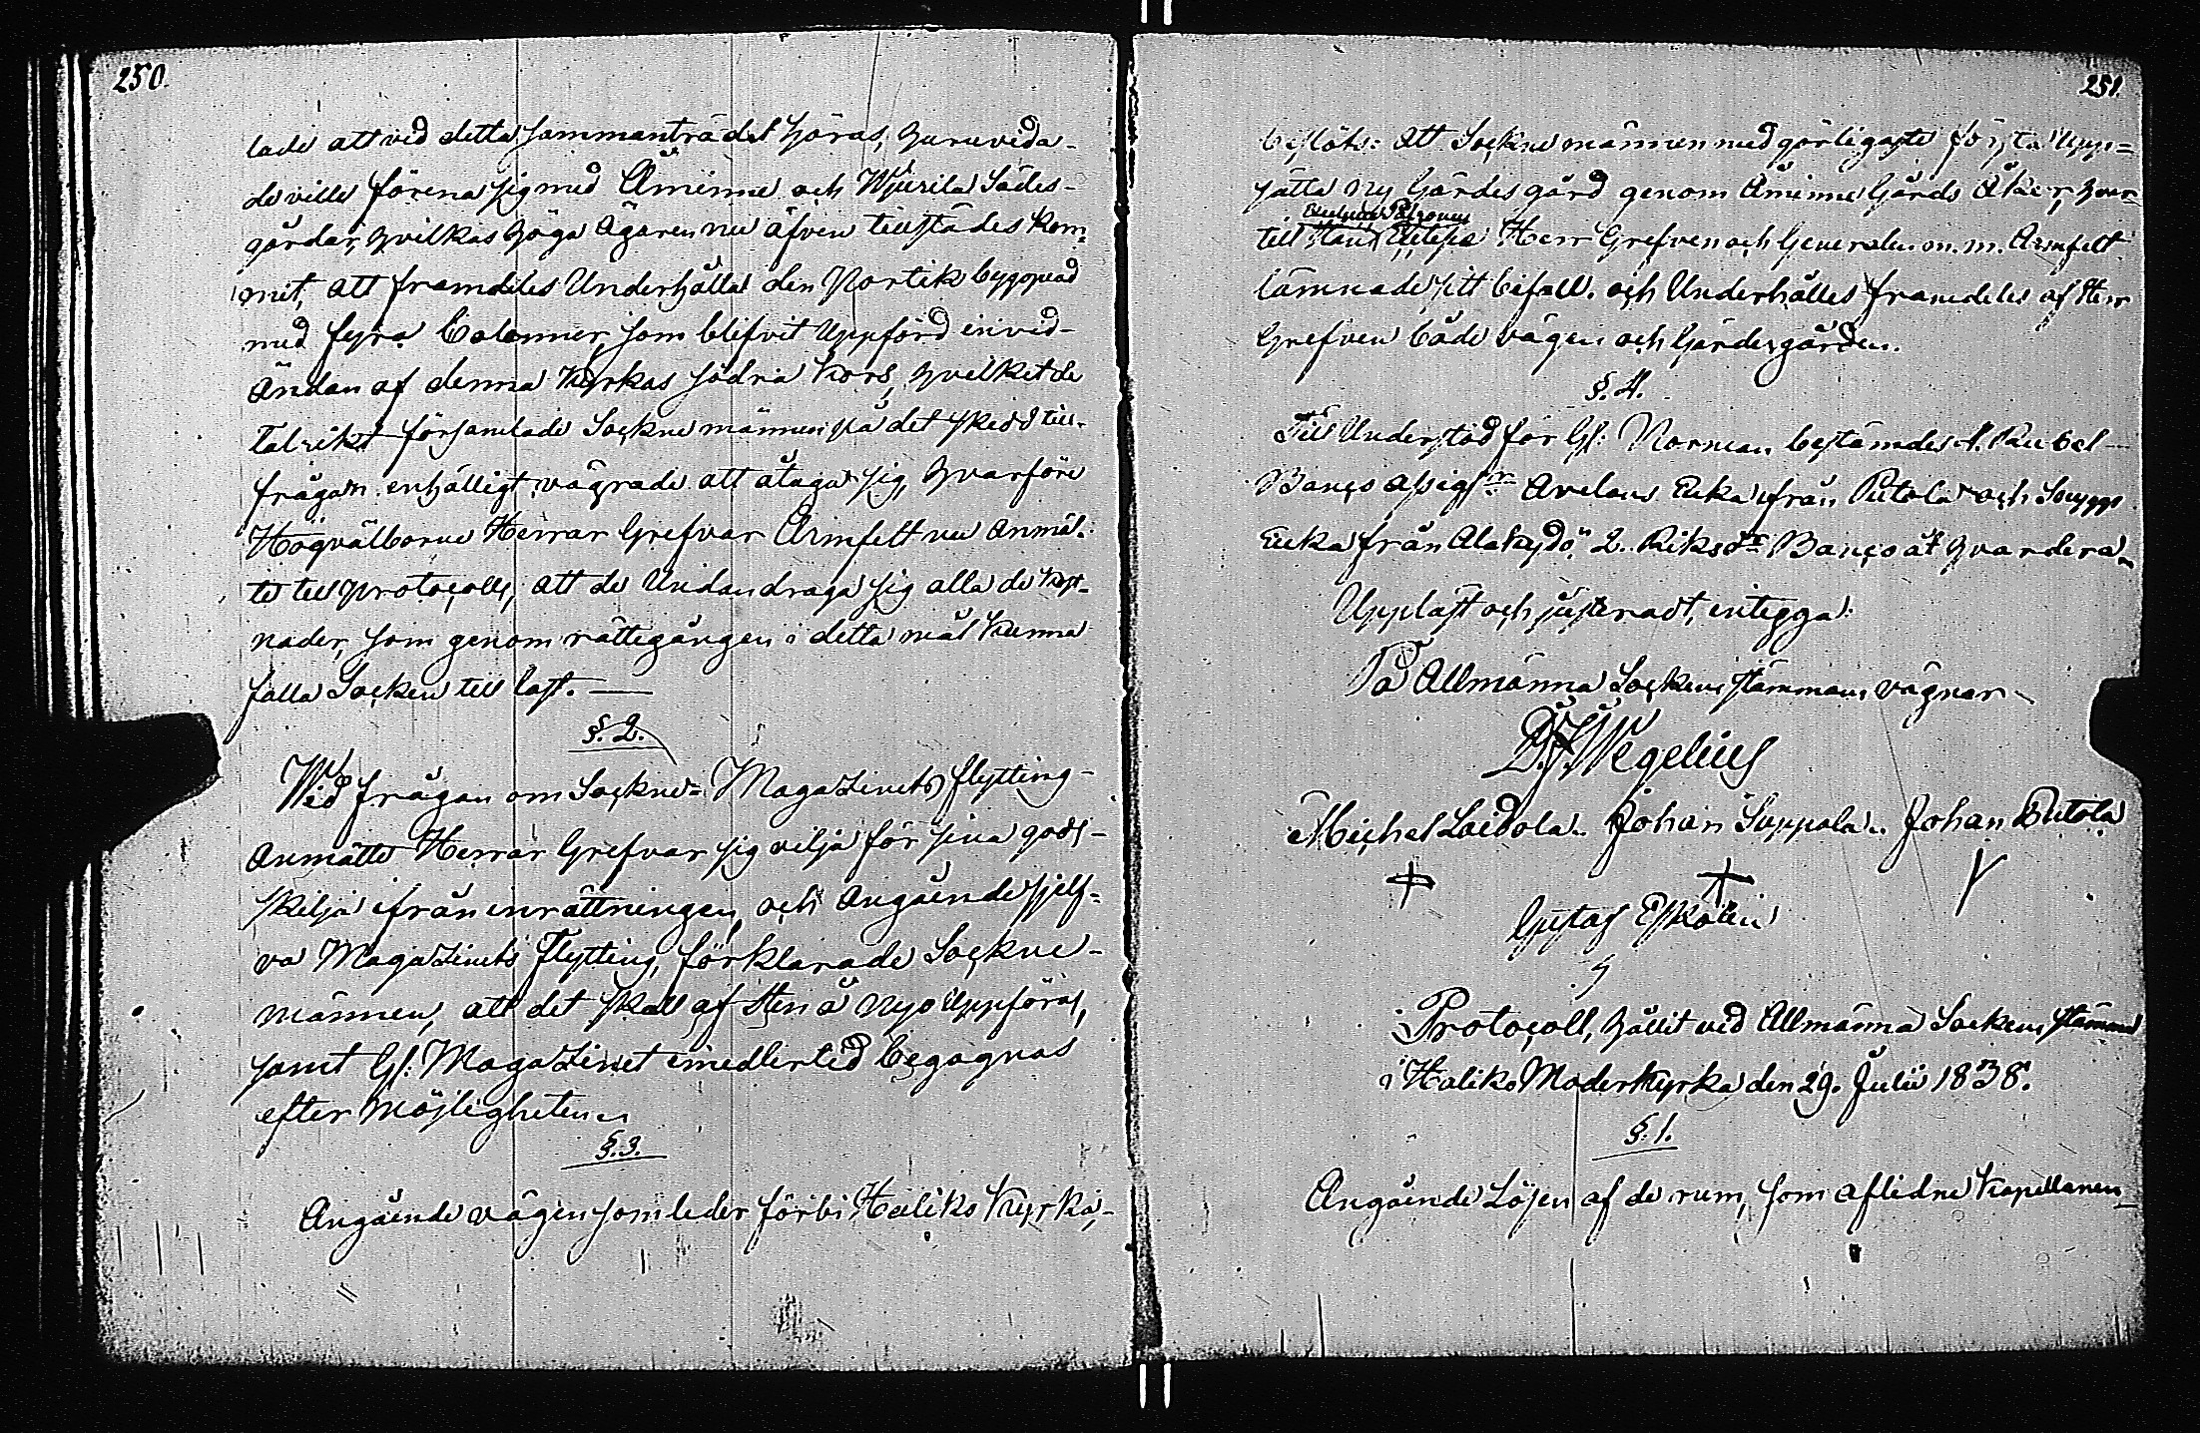 250.
lade att vid detta sammanträdet höras, huruvida
de ville förena sig med Åminne och Wjurila Sädes-
gårdar, hvilkas höga Ägaren nu äfven tillstädes kom-
mit, att framdeles Underhålla den Portik byggnad
med fyra Colonner, som blifvit Uppförd invid
Ändan af denna Kyrkas södra Kors, hvilket de
talrikt församlade Sockne männen på det skedd till-
frågan enhälligt vägrade att åtaga sig, hvarföre
Högvälborne Herrar Grefvar Armfelt nu anmäl-
te till Protocoll, att de Undandraga sig alla de kost-
nader, som genom rättegången i detta mål kunna
falla Socken till last. —
§. 2.
Wid frågan om Sockne- Magazinets flyttning
Anmälte Herrar Grefvar sig vilja för sina gods
skilja ifrån inrättningen, och Angående sjelf-
va Magazinets Flytting, förklarade Sockne-
männen, att det skall af Sten å nyo Uppföras,
samt Gl: Magazinet emedlertid begagnas
efter Möjligheten.
§. 3.
Angående vägen som leder förbi Haliko Kyrka,
251.
beslöts: Att Sockne männen med görligaste första Upp-
sätta ny Gärdesgård genom Åminne Gårds Åker, hvar-
till Hans Herr Grefven och Generalen m. m. Armfelt
lämnade sitt bifall. och Underhålles framdeles af Herr
Grefven både vägen och Gärdesgården.
§. 4.
Till Understöd för Gl: Norman bestämdes 1. Rubel
Banco Assign. Enka från Pitola och
Enka från Alakydö, 2. Riksdr Banco åt hvardera.
Uppläst och justeradt, intygga:
På Allmänna Sockene stämmans vägnar
D. J. Wegelius
Michel Laidola. Johan Suppala. Johan Pitola
Gustaf Eskolin
Protocoll, hållit vid Allmänna Sockene stämma
i Haliko Moderkyrka den 29. Julii 1838.
§. 1.
Angående Lösen af de rum, som aflidne Kapellanen